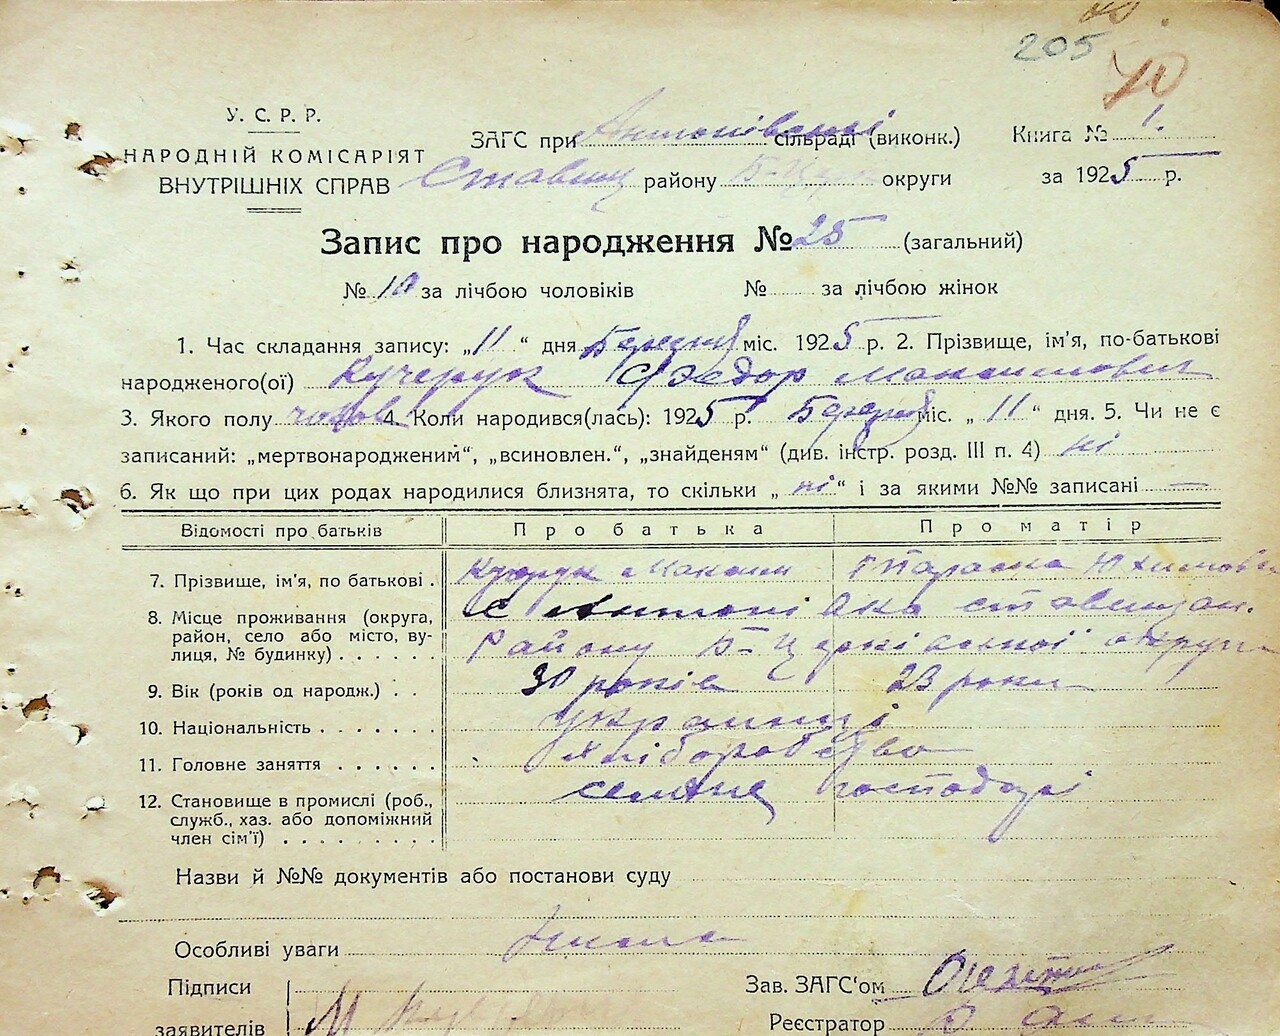 205
70
У. С. Р. Р.
НАРОДНІЙ КОМІСАРІЯТ
ВНУТРІШНІХ СПРАВ
ЗАГС при Антонівській сільраді (виконк.)
Ставищ району Б-Церк округи
Книга № 1.
за 1925 р.
Запис про народження № 25 (загальний)
№ 10 за лічбою чоловіків № за лічбою жінок
1. Час складання запису: „11“ дня Березня міс. 1925 р. 2. Прізвище, ім'я, по-батькові
народженого(ої) Кучерук Федор Максимович
3. Якого полу чолов 4. Коли народився(лась): 1925 р. Березня міс. „11“ дня. 5. Чи не є
записаний: „мертвонародженим“, „всиновлен.“, „знайденям“ (див. інстр. розд. III п. 4) ні
6. Як що при цих родах народилися близнята, то скільки „ні“ і за якими №№ записані —
Відомості про батьків Про батька Про матір
7. Прізвище, ім'я, по батькові . Кучерук Максим Параска Юхимовн
8. Місце проживання (округа, район, село або місто, вулиця, № будинку) . . . . . .
с Антонівка Ставищан.
Району Б-Церківської округи
9. Вік (років од народж.) . . 30 років 23 роки
10. Національність . . . . . . . українці
11. Головне заняття . . . . . . хліборобство
12. Становище в промислі (роб.,
служб., хаз. або допоміжний
член сім'ї) . . . . . . . . .
селяне господарі
Назви й №№ документів або постанови суду
Особливі уваги
Підписи
заявителів
Зав. ЗАГС'ом
Реєстратор